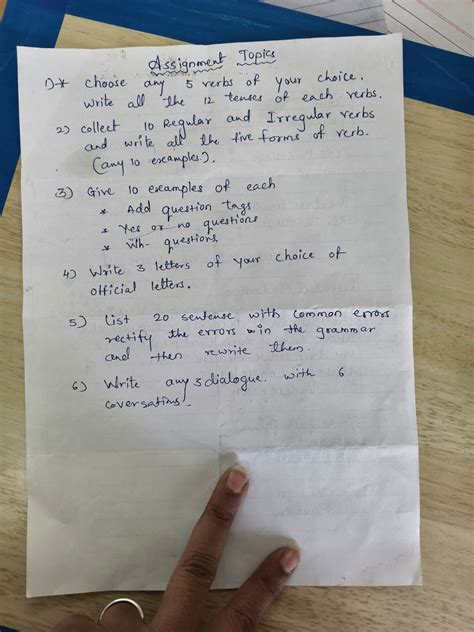 Assignment Topics
1)* choose any 5 verbs of your choice.
Write all the 12 tenses of each verbs.
2) collect 10 Regular and Irregular verbs
and write all the five forms of verb.
(any 10 examples.).
3) Give 10 examples of each
* Add question tags
* Yes or no questions
* Wh- questions
4) Write 3 letters of your choice of
official letters.
5) List 20 sentence with common errors
rectify the errors in the grammar
and then rewrite them.
6) Write any 3 dialogue. with 6
coversations.